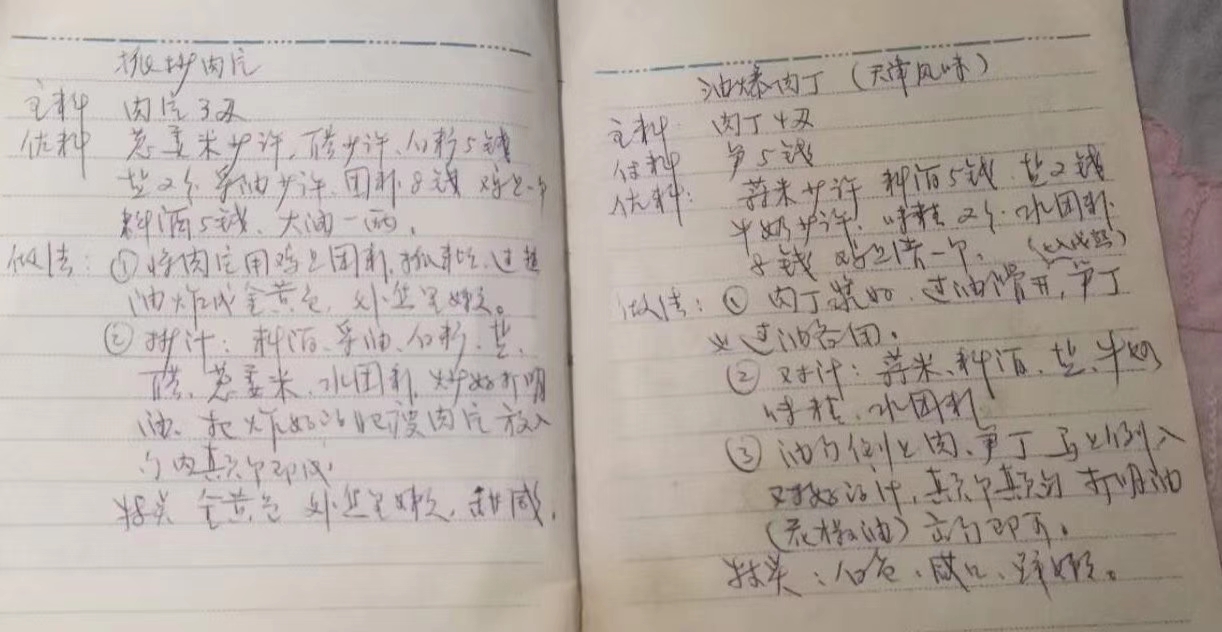 抓炒肉片
主料 肉片3两
佐料 葱姜米少许、醋少许、白粉5钱
盐2个 酱油少许、团粉8钱 鸡旦一个
料酒5钱、大油一两。
做法：①将肉片用鸡旦团粉抓匀、过
油炸成金黄色、外焦里嫩。
②对汁：料酒、酱油、白粉、盐、
醋、葱姜米、水团粉、炒好打明
油、把炸好的肉片放入
勺内颠个即成
特点 金黄色 外焦里嫩、甜咸。
油爆肉丁（天津风味）
主料 肉丁4两
笋5钱
佐料：蒜米少许 料酒5钱 盐2钱
牛奶少许、味精2个、水团粉
8钱 鸡旦清一个、
做法：①肉丁浆好、过油滑开，笋丁
过油备用。
②对汁：蒜米、料酒、盐、牛奶
味精、水团粉
③油勺倒上肉、笋丁马上倒入
对好的汁，颠个颠匀 打明油
（花椒油）出勺即可。
特点：白色、咸口、鲜嫩。